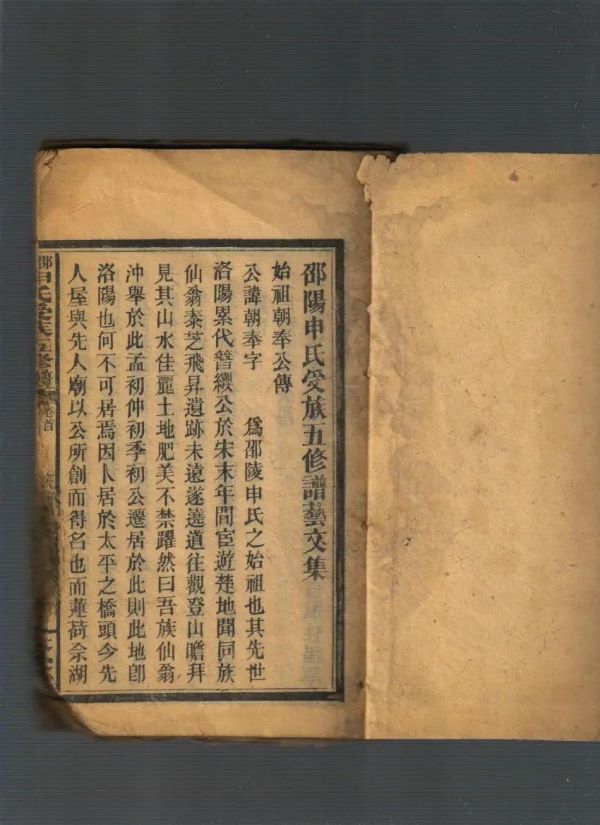 邵陽申氏受族五修譜藝文集
始祖朝奉公傳
公諱朝奉字 爲邵陵申氏之始祖也其先世
洛陽累代簪纓公於宋末年間宦遊楚地聞同族
仙翁泰芝飛昇遺跡未遠遂遶道往觀登山瞻拜
見其山水佳麗土地肥美不禁躍然曰吾族仙翁
沖舉於此孟初仲初季初公遷居於此則此地卽
洛陽也何不可居焉因卜居於太平之橋頭今先
人屋與先人廟以公所創而得名也而蓮荷佘湖
申氏受族五修譜
卷首